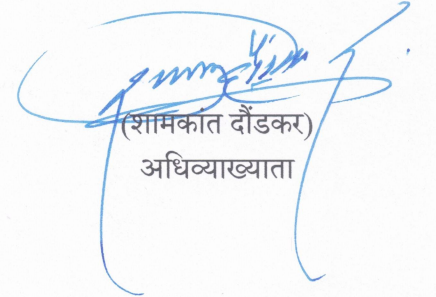 (शामकांत दौंडकर)
अधिव्याख्याता